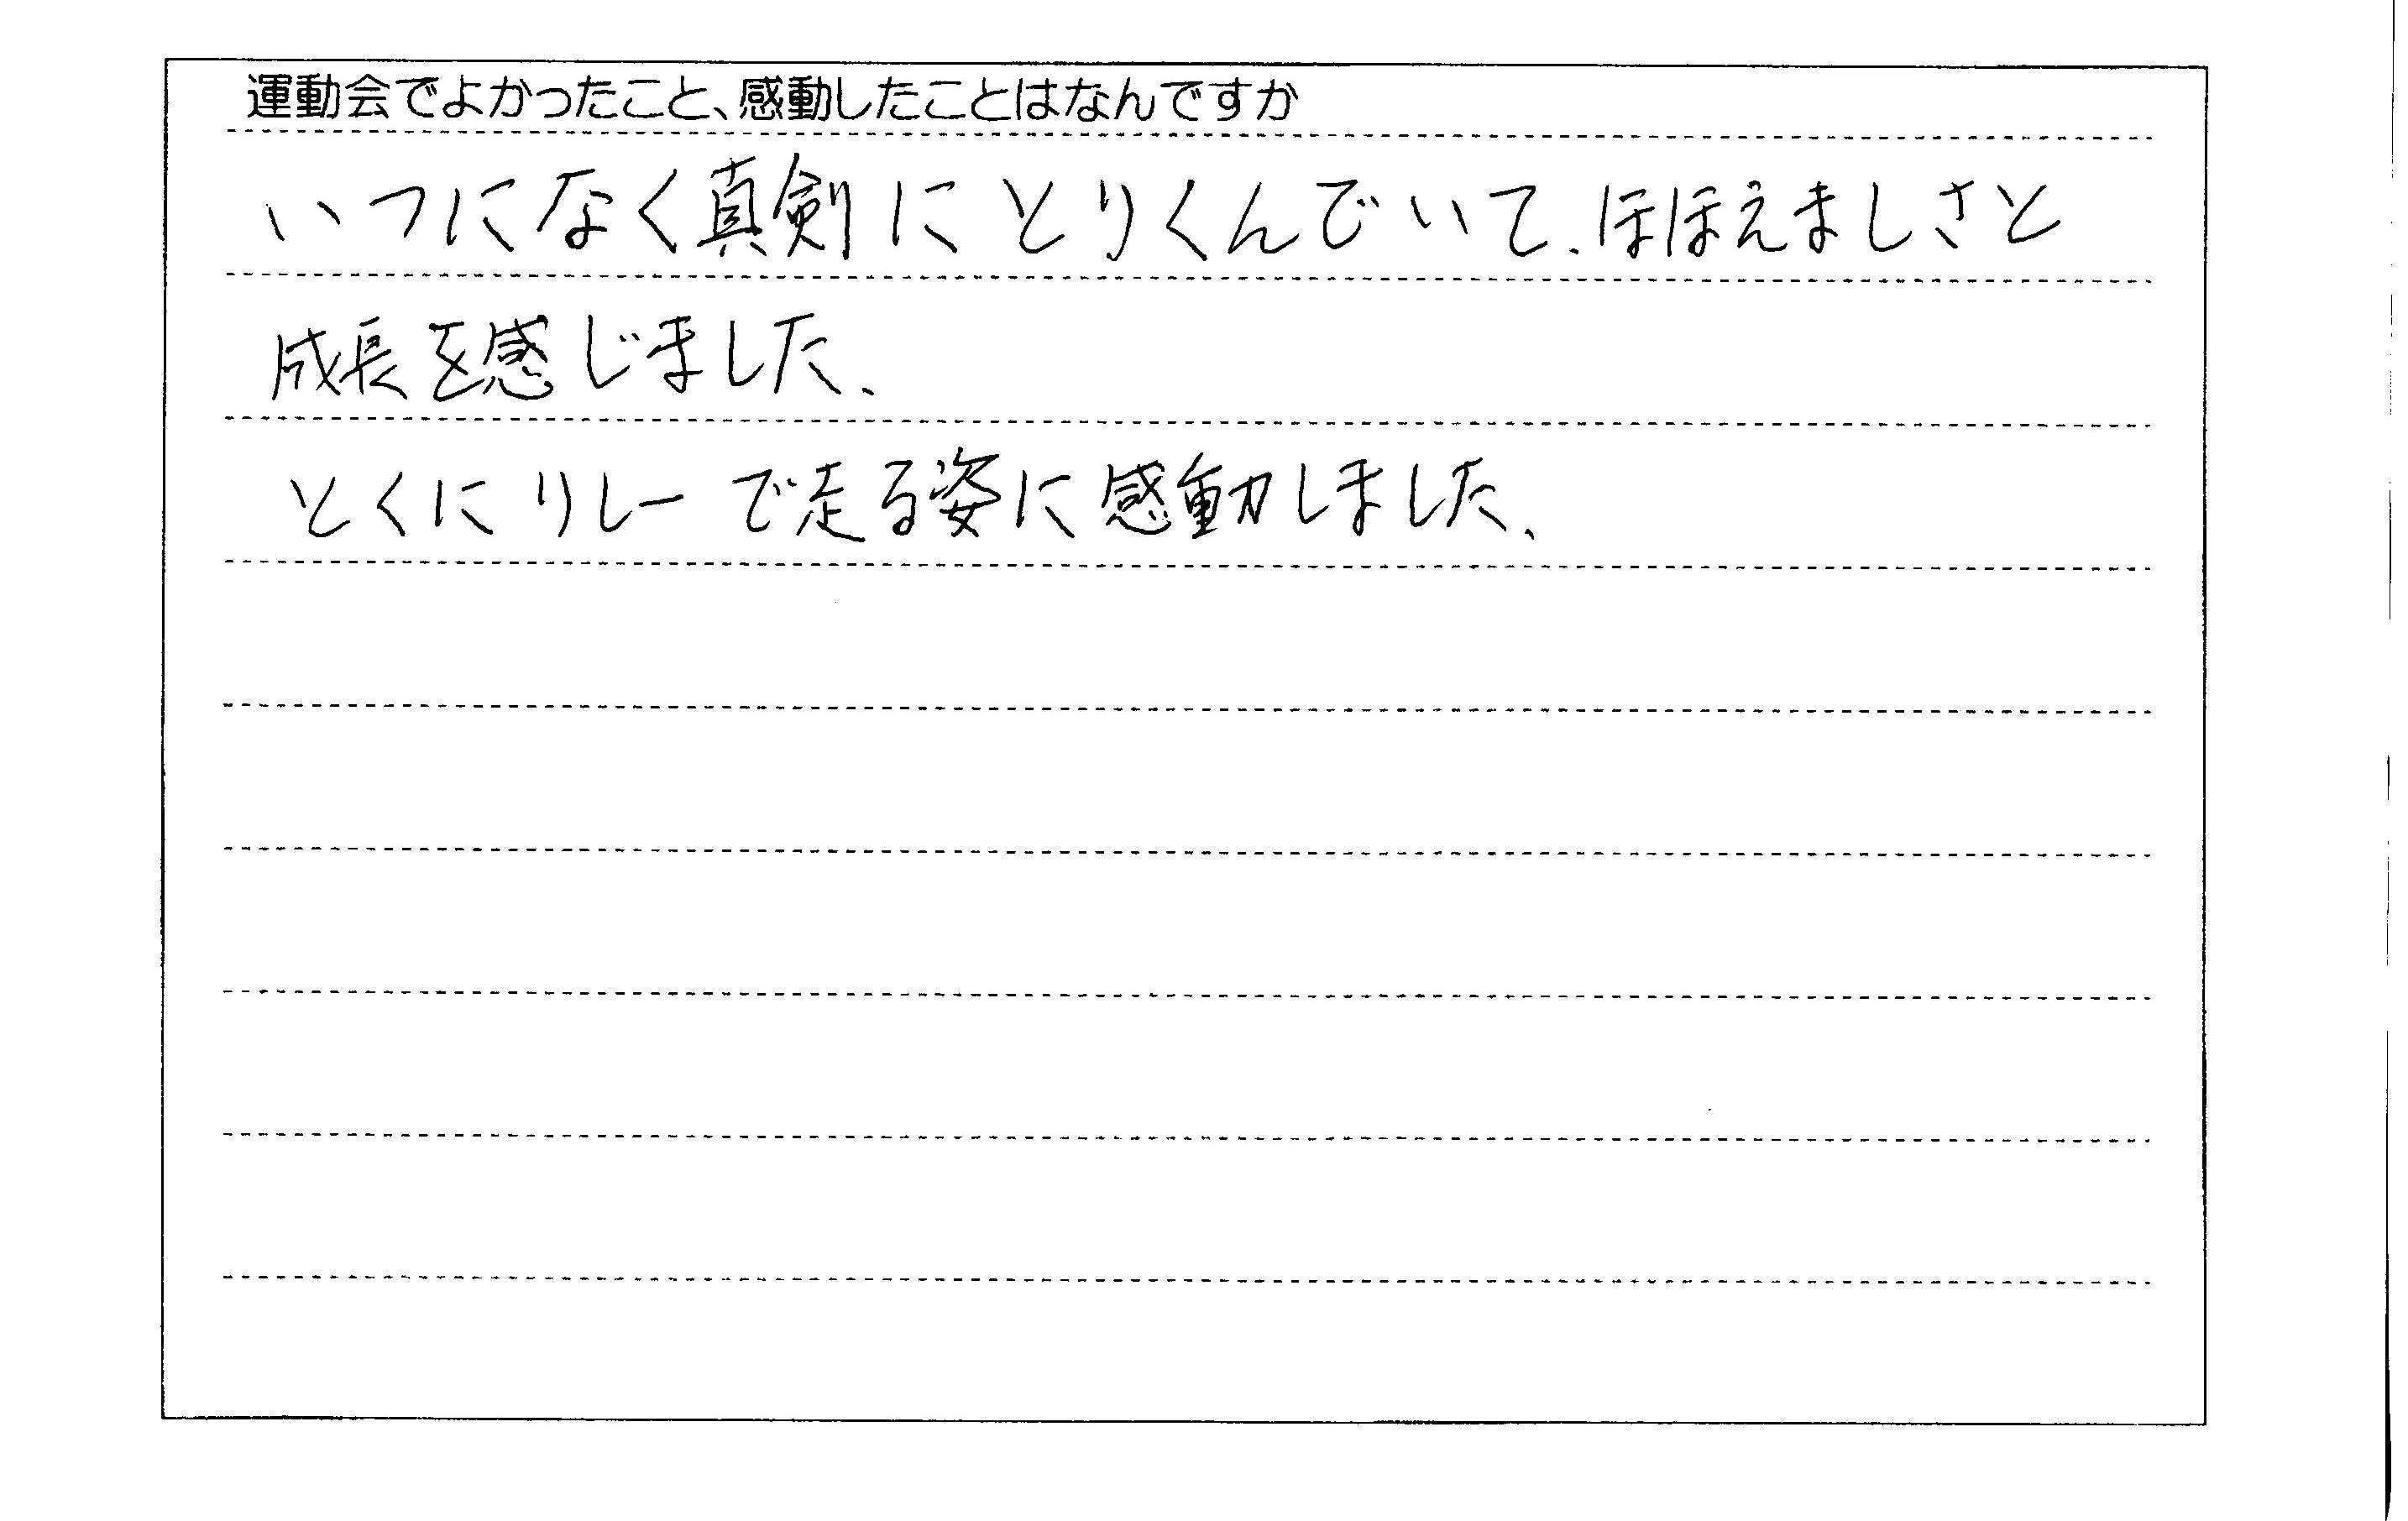 運動会でよかったこと、感動したことはなんですか
いつになく真剣にとりくんでいて、ほほえましさと
成長を感じました、
とくにリレーで走る姿に感動しました、